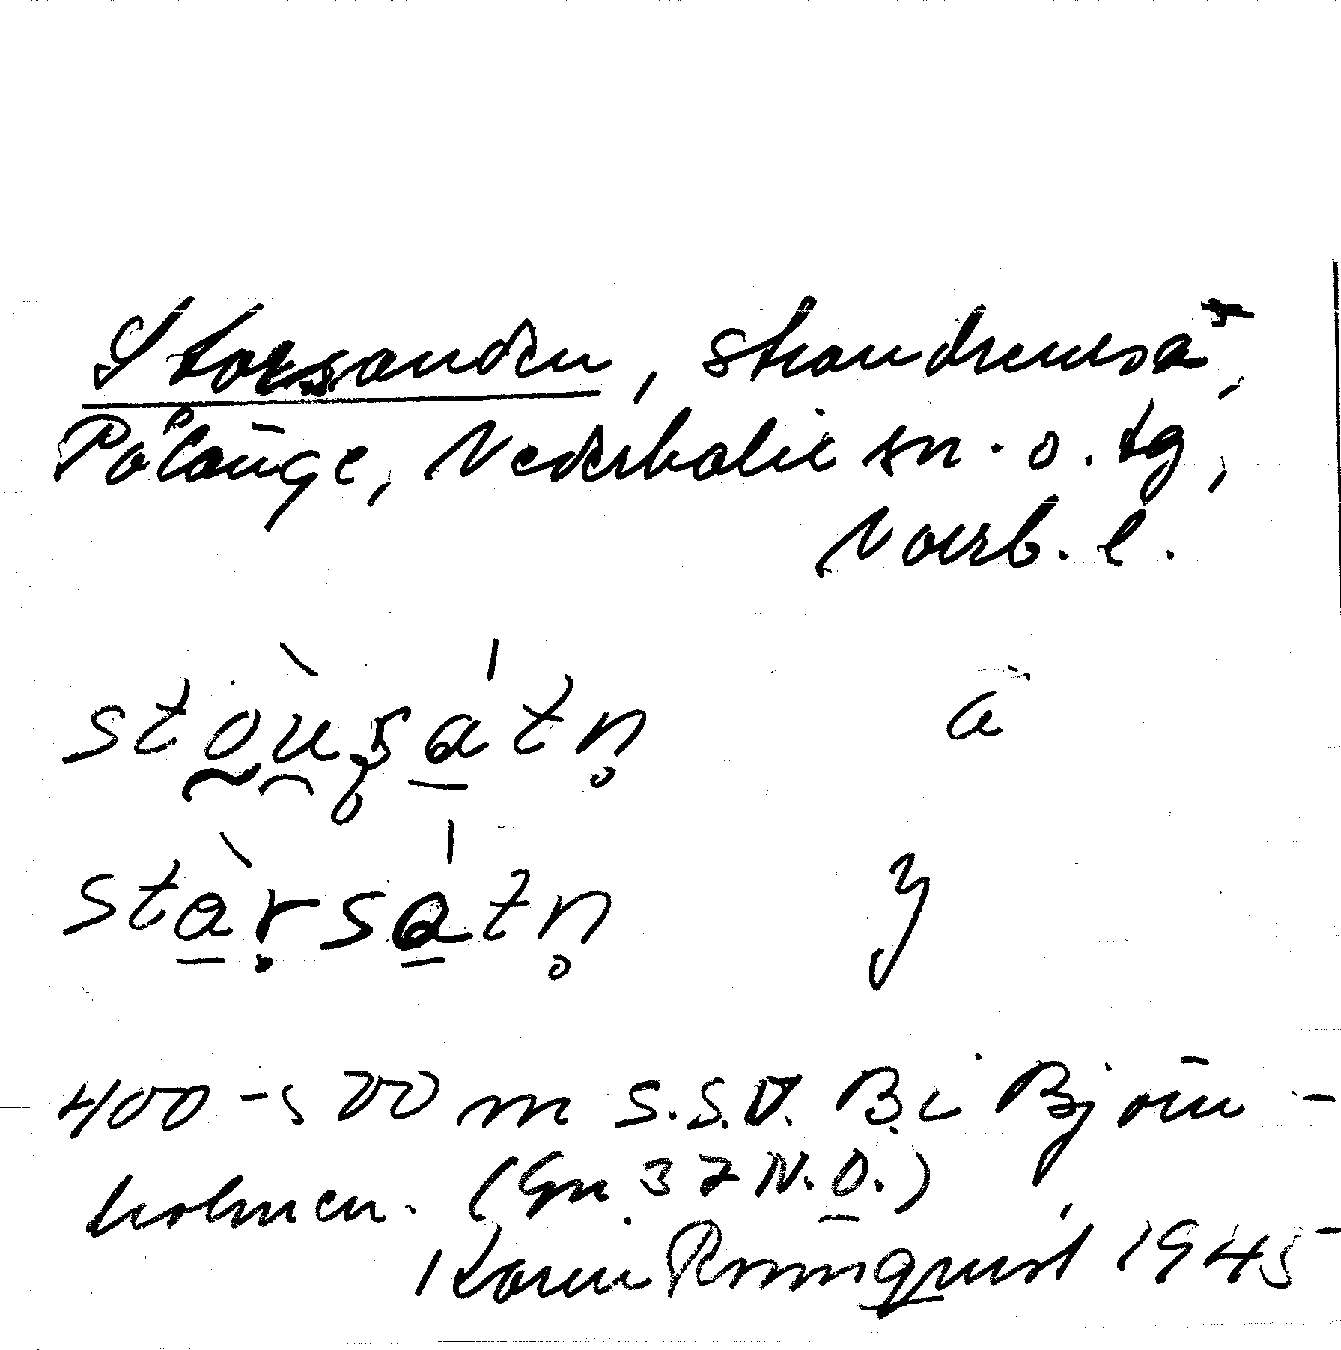 Storsanden, strandremsa,
Pålänge, Nederkalix sn. o. tg,
Norrb. l.
stou̯ṣátn̥ a
stàrsátn̥ y
400-500 m S.S.V. B. i Björn-
holmen. (Gn 37 N.O.)
Karin Rönnqvist 1945